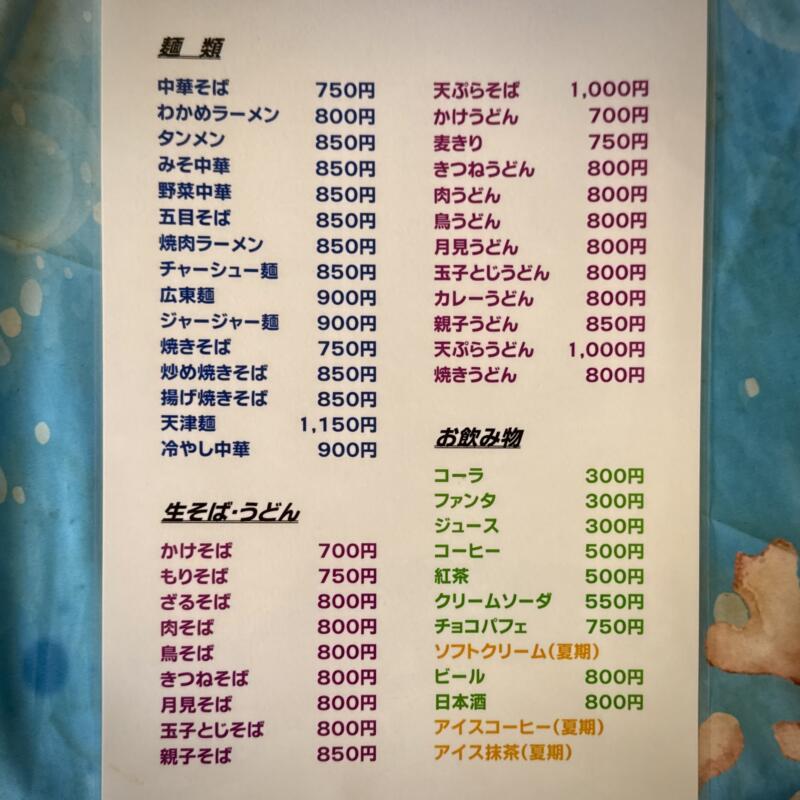 麺　類
中華そば 750円
わかめラーメン 800円
タンメン 850円
みそ中華 850円
野菜中華 850円
五目そば 850円
焼肉ラーメン 850円
チャーシュー麺 850円
広東麺 900円
ジャージャー麺 900円
焼きそば 750円
炒め焼きそば 850円
揚げ焼きそば 850円
天津麺 1,150円
冷やし中華 900円
生そば・うどん
かけそば 700円
もりそば 750円
ざるそば 800円
肉そば 800円
鳥そば 800円
きつねそば 800円
月見そば 800円
玉子とじそば 800円
親子そば 850円
天ぷらそば 1,000円
かけうどん 700円
麦きり 750円
きつねうどん 800円
肉うどん 800円
鳥うどん 800円
月見うどん 800円
玉子とじうどん 800円
カレーうどん 800円
親子うどん 850円
天ぷらうどん 1,000円
焼きうどん 800円
お飲み物
コーラ 300円
ファンタ 300円
ジュース 300円
コーヒー 500円
紅茶 500円
クリームソーダ 550円
チョコパフェ 750円
ソフトクリーム(夏期)
ビール 800円
日本酒 800円
アイスコーヒー(夏期)
アイス抹茶(夏期)